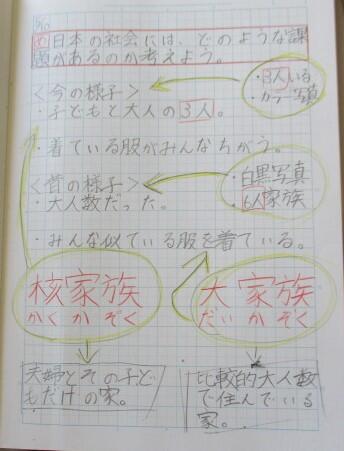 5/10
め 日本の社会には、どのような課
題があるのか考えよう。
<今の様子>
・子どもと大人の3人。
・3人いる
・カラー写真
・着ている服がみんなちがう。
<昔の様子>
・大人数だった。
・白黒写真
・6人家族
・みんな似ている服を着ている。
核家族
かくかぞく
大家族
だいかぞく
夫婦とその子ど
もだけの家。
比較的大人数
で住んでいる
家。